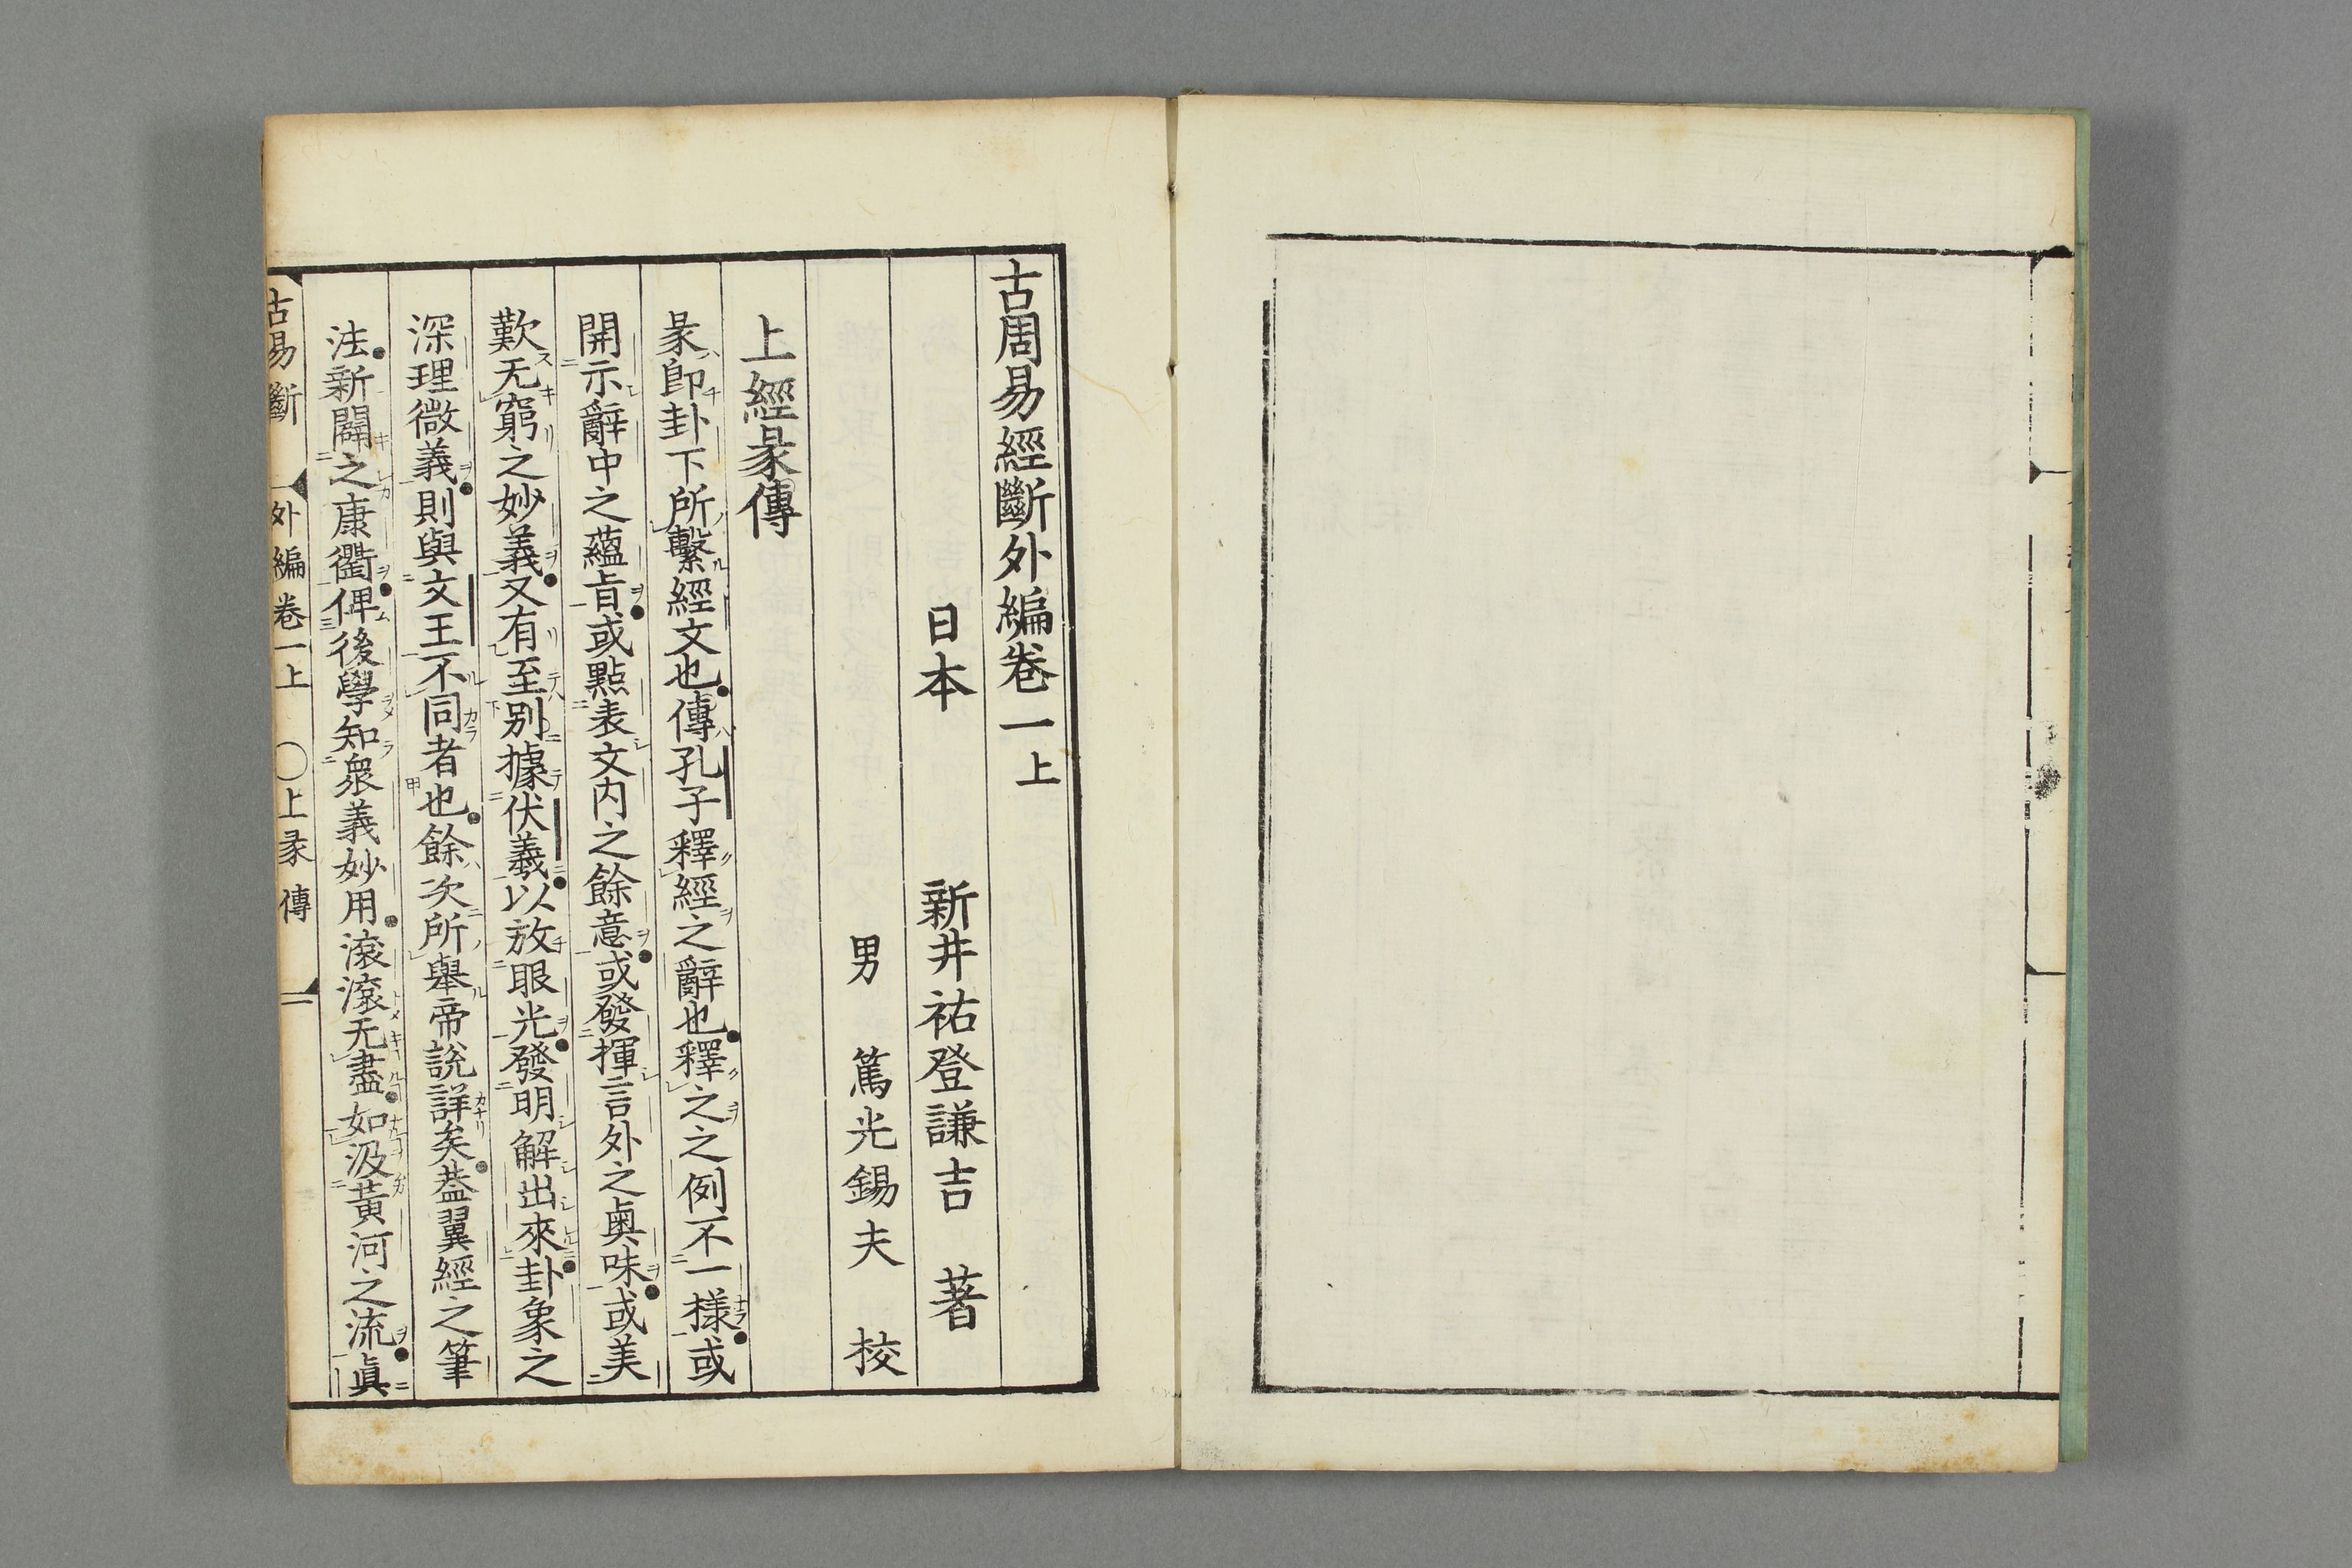 古周易經斷外編卷一上
日本 新井祐登謙吉 著
男 篤光錫夫 校
上經彖傳
彖卽卦下所繫經文也傳孔子釋經之辭也釋之之例不一樣或
開示辭中之蘊旨或點表文内之餘意或發揮言外之奥味或美
歎无窮之妙義又有至别據伏羲以放眼光發明解出來卦象之
深理微義則與文王不同者也餘次所舉帝說詳矣葢翼經之筆
法新闢之康衢俾後學知衆義妙用滾滾无盡如汲黃河之流眞
古易斷 外編卷一上 〇上彖傳 一